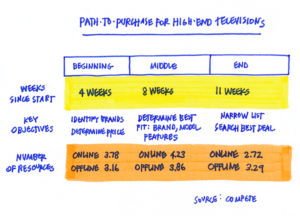 PATH-TO-PURCHASE FOR HIGH-END TELEVISIONS
BEGINNING MIDDLE END
WEEKS SINCE START
4 WEEKS 8 WEEKS 11 WEEKS
KEY OBJECTIVES
IDENTIFY BRANDS
DETERMINE PRICE
DETERMINE BEST
FIT: BRAND, MODEL
FEATURES
NARROW LIST
SEARCH BEST DEAL
NUMBER OF RESOURCES
ONLINE 3.78 ONLINE 4.23 ONLINE 2.72
OFFLINE 3.16 OFFLINE 3.86 OFFLINE 3.29
SOURCE: COMPETE